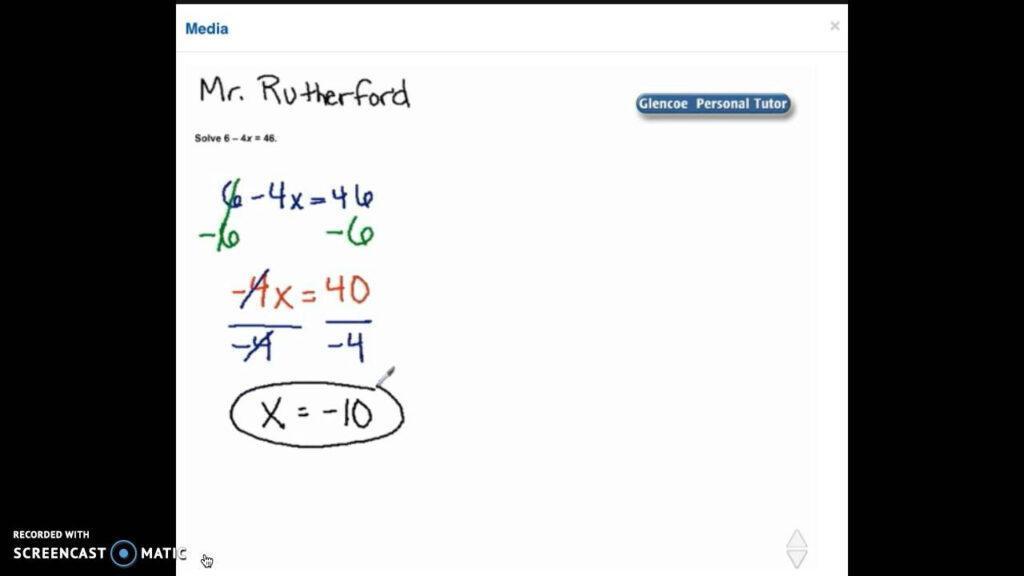 Media
×
Mr. Rutherford
Glencoe Personal Tutor
Solve 6 – 4x = 46.
6 - 4x = 46
-6 -6
-4x = 40
-4 -4
x = -10
RECORDED WITH
SCREENCAST MATIC